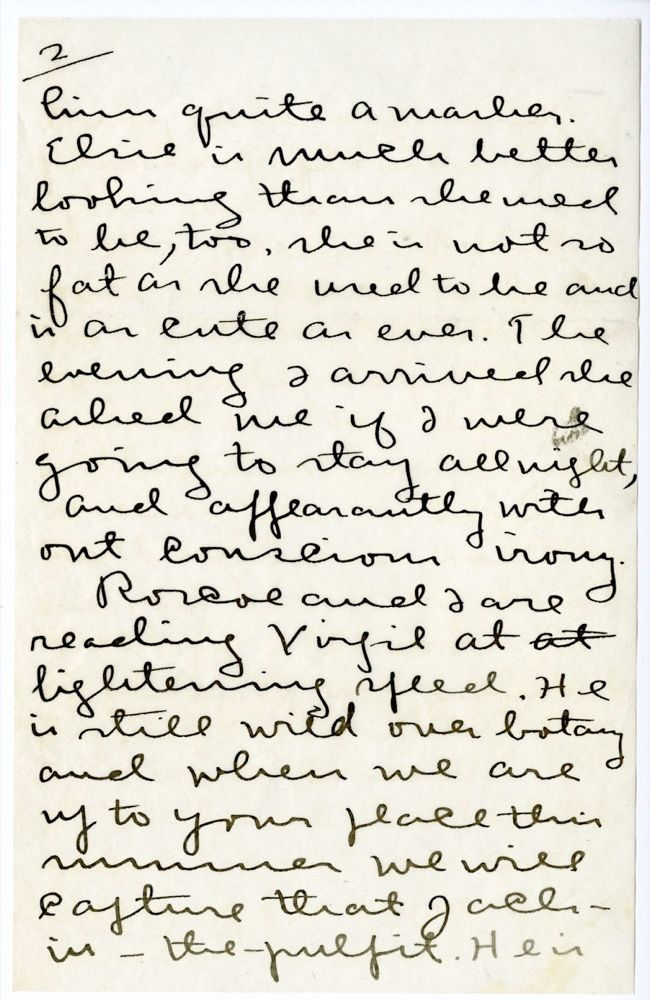 2
him quite a masher.
Elsie is much better
looking than she used
to be, too. She is not so
fat as she used to be and
is as cute as ever. The
evening I arrived she
asked me if I were
going to stay all night,
and appearantly with
out conscious irony.
Roscoe and I are
reading Virgil at at
lightening speed. He
is still wild over botany
and when we are
up to your place this
summer we will
capture that Jack-
in-the-pulpit. He is